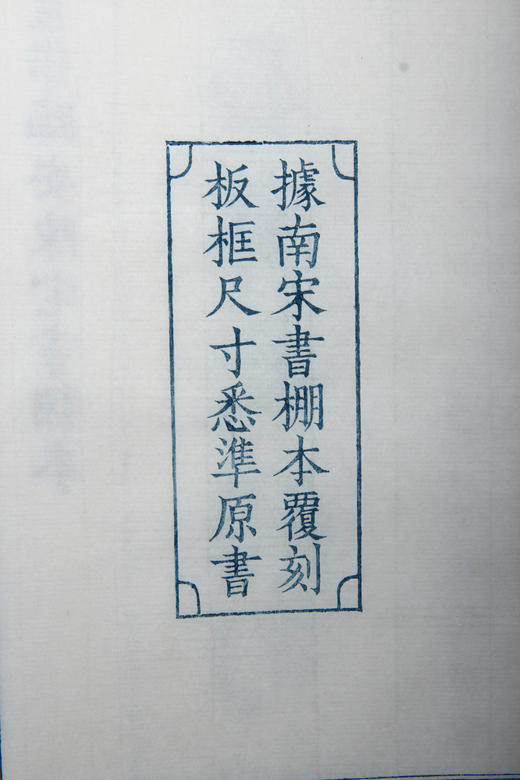 據南宋書棚本覆刻
板框尺寸悉準原書